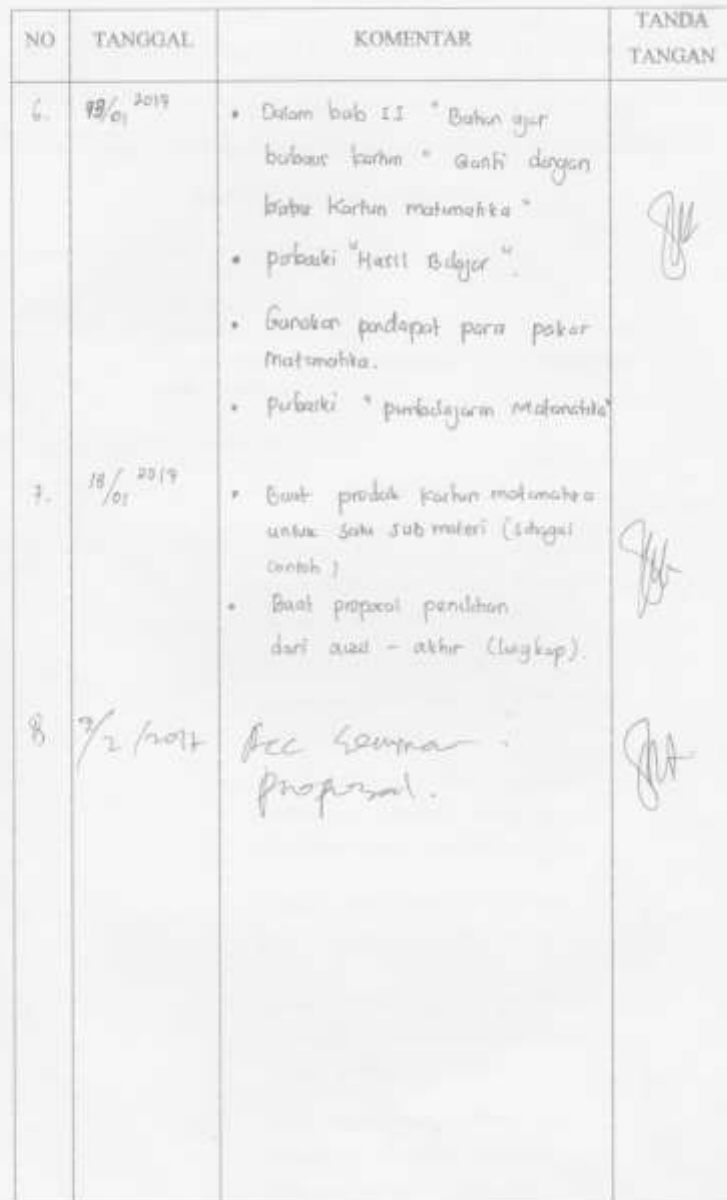 NO TANGGAL KOMENTAR TANDA TANGAN
6. /01 2017 • Dalam bab II " Bahan ajar
kartun " Ganti dengan
Kartun matematika "
• perbaiki "Hasil Belajar ".
• Gunakan pendapat para pakar
matematika.
• Perbaiki " pembelajaran Matematika"
7. 18/01 2017 • Buat produk kartun matematika
untuk satu sub materi (sebagai
contoh )
• Buat proposal penelitian
dari awal - akhir (lengkap).
8 /2 /2017 Acc Seminar
proposal.